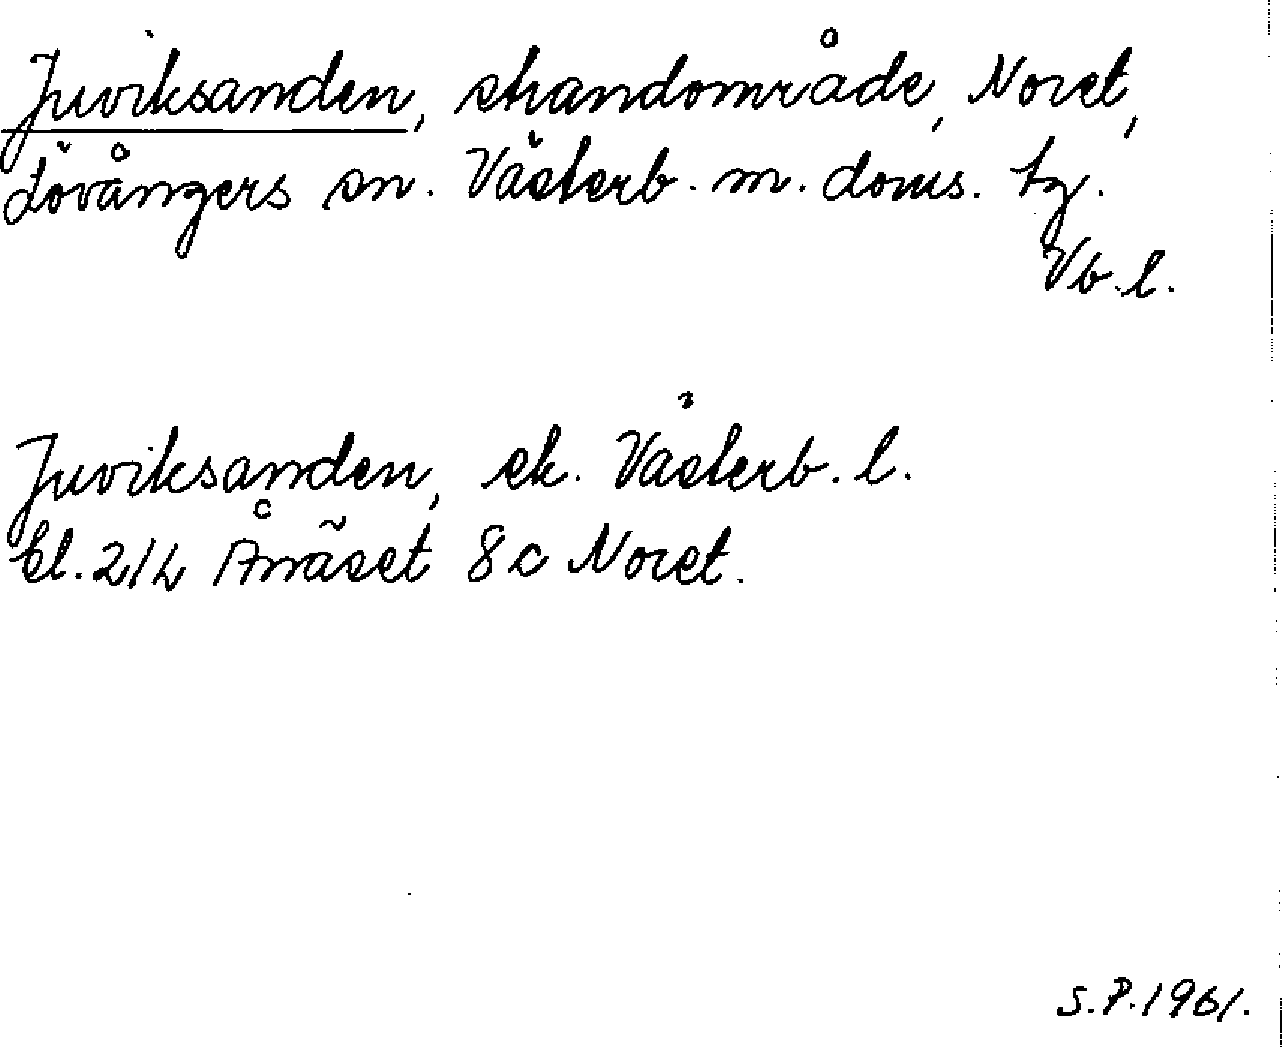 Juviksanden, strandområde, Noret,
Lövångers sn. Västerb. m. doms. tg.
Vb. l.
Juviksanden, ek. Västerb. l.
bl. 21L Ånäset 8c Noret.
S.P. 1961.